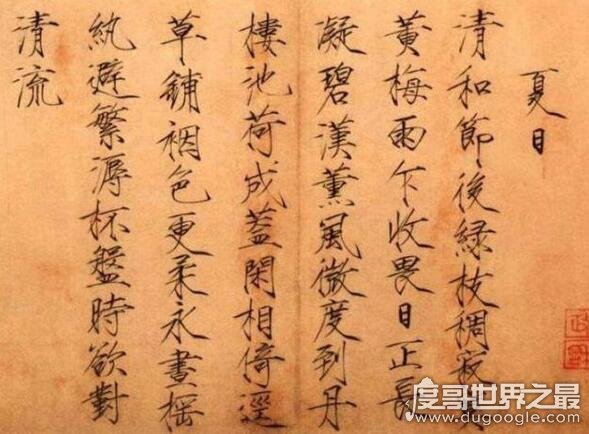 夏日
清和節後緑枝稠寂寞
黄梅雨乍收畏日正長
凝碧漢薰風微度到丹
樓池荷成蓋閑相倚逕
草鋪裀色更柔永晝摇
紈避繁溽杯盤時欲對
清流
度哥世界之最
www.dugoogle.com